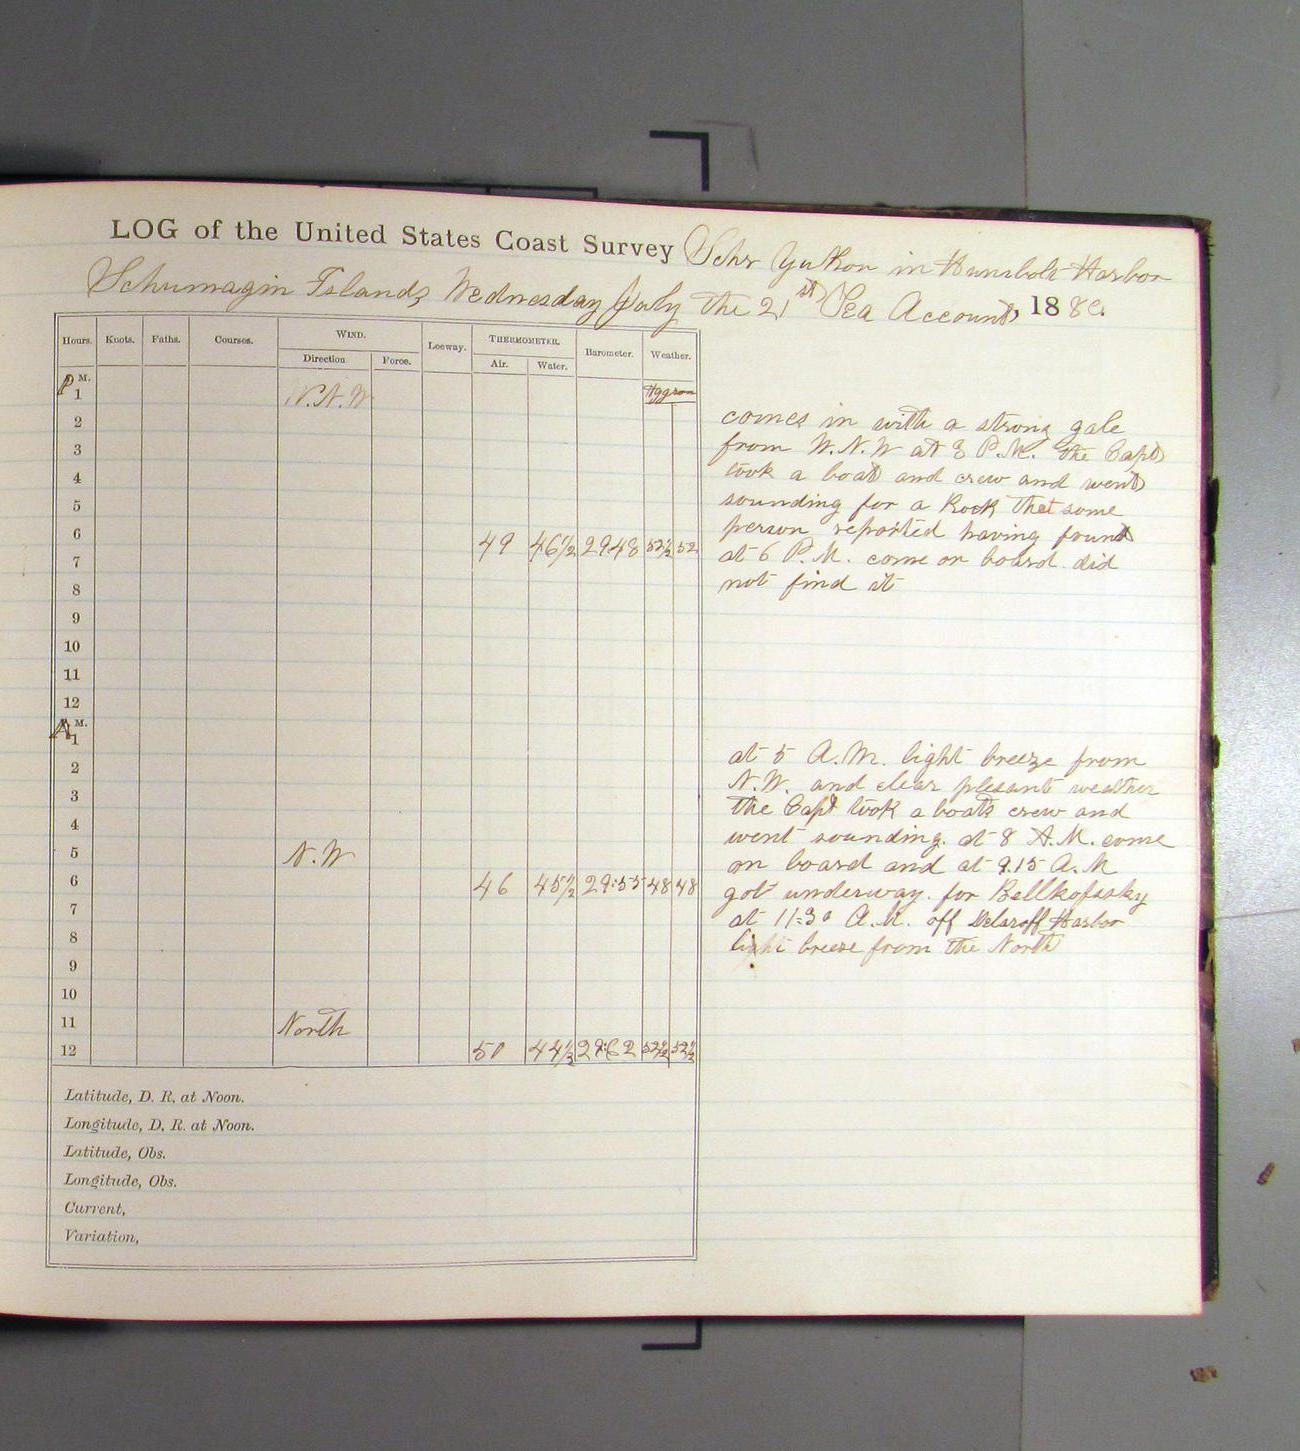 LOG of the United States Coast Survey Schr Yukon in Humbolt Harbor
Schumagin Islands Wednesday July the 21st Sea Account, 1880.
Hours. Knots. Faths. Courses. WIND. Leeway. THERMOMETER. Barometer. Weather.
Direction Force. Air. Water.
P M.
1 N.W Hygrom
2
3
4
5
6 49 46½ 29.48 52½ 52
7
8
9
10
11
12
A M.
1
2
3
4
5 N.W
6 46 45½ 29:55 48 48
7
8
9
10
11 North
12 50 44½ 29:62 52½ 52½
Latitude, D. R. at Noon.
Longitude, D. R. at Noon.
Latitude, Obs.
Longitude, Obs.
Current,
Variation,
comes in with a strong gale
from W.N.W at P.M. the Capt
took a boat and crew and went
sounding for a Rock that some
person reported having found
at 6 P.M. come on board did
not find it
at 5 A.M. light breeze from
N.W. and clear plesant weather
the Capt took a boats crew and
went sounding. at 8 A.M. come
on board and at 9.15 A.M
got underway for Bellkofssky
at 11:30 A.M. off Delaroff Harbor
light breeze from the North